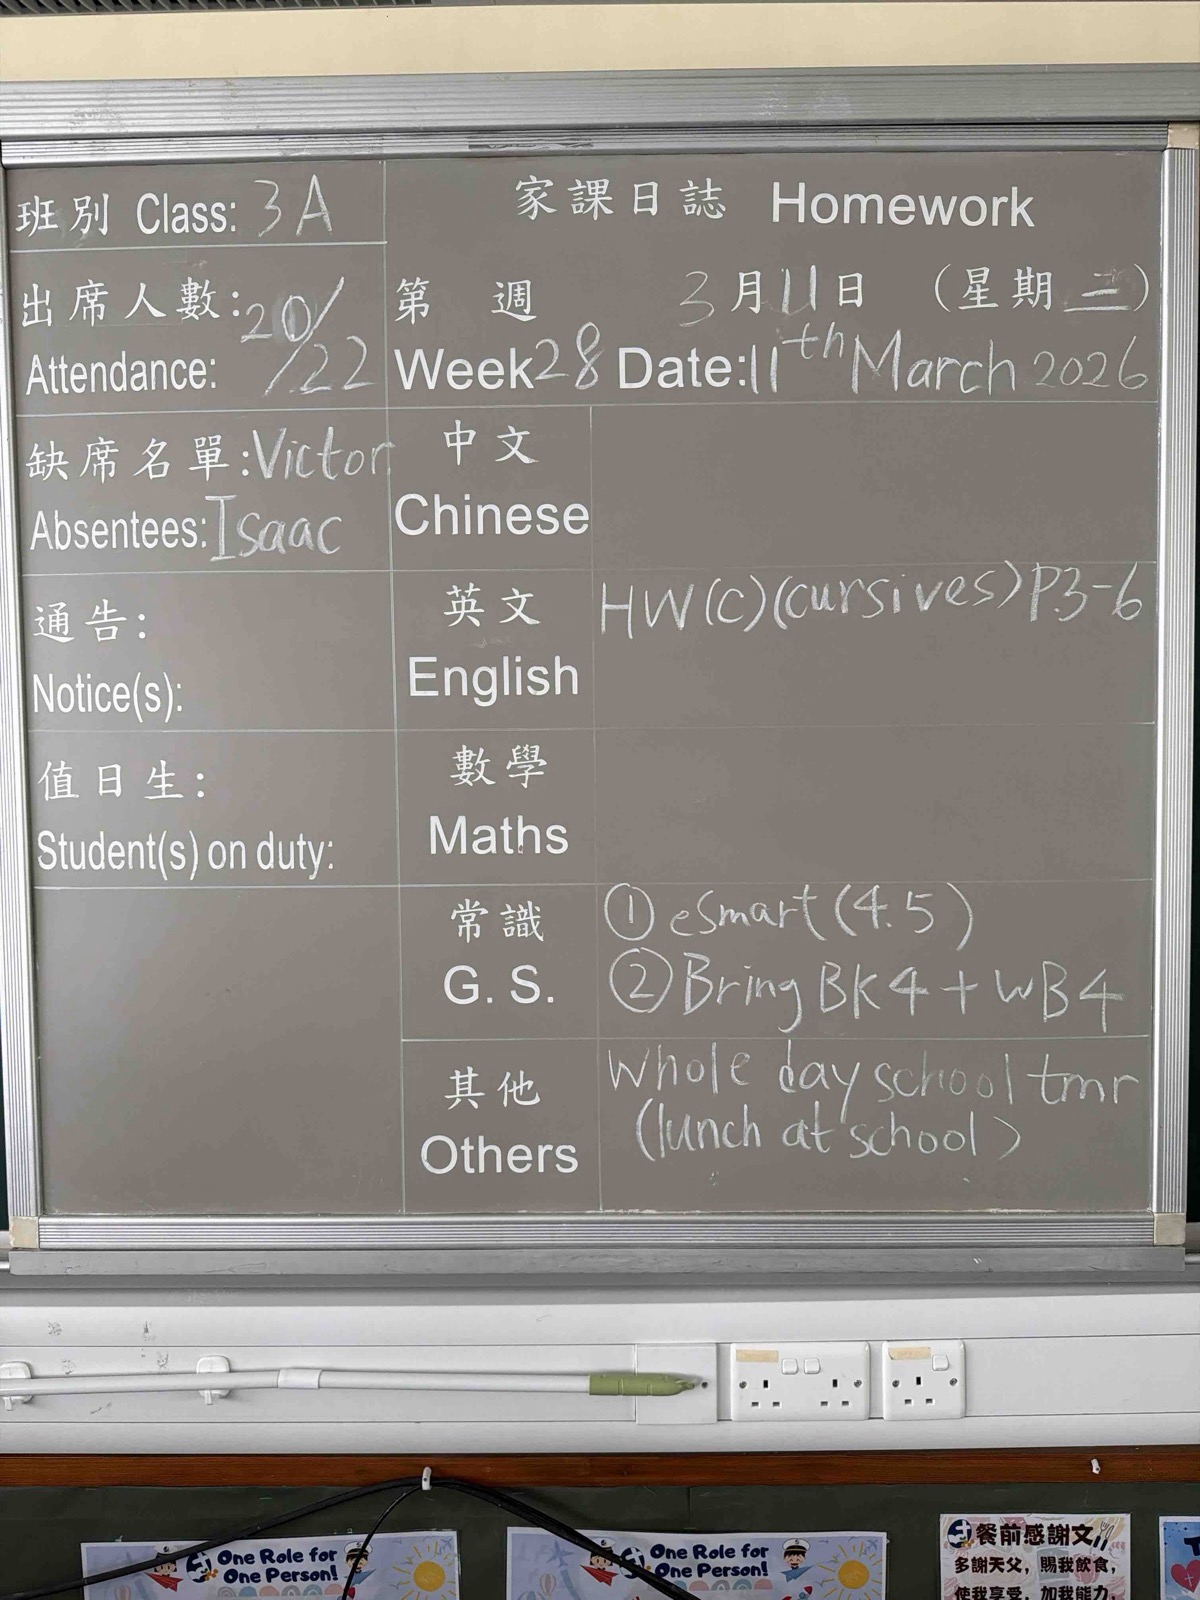 班別 Class: 3A
家課日誌 Homework
出席人數: 20/22
Attendance:
第 週 3月11日 (星期三)
Week 28 Date: 11th March 2026
缺席名單: Victor
Absentees: Isaac
中文
Chinese
通告:
Notice(s):
英文 HW(C)(cursives) P.3-6
English
值日生:
Student(s) on duty:
數學
Maths
常識 ① eSmart (4.5)
G. S. ② Bring BK4 + WB4
其他 Whole day school tmr
Others (lunch at school)
One Role for
One Person!
One Role for
One Person!
餐前感謝文
多謝天父，賜我飲食，
使我享受，加我能力，